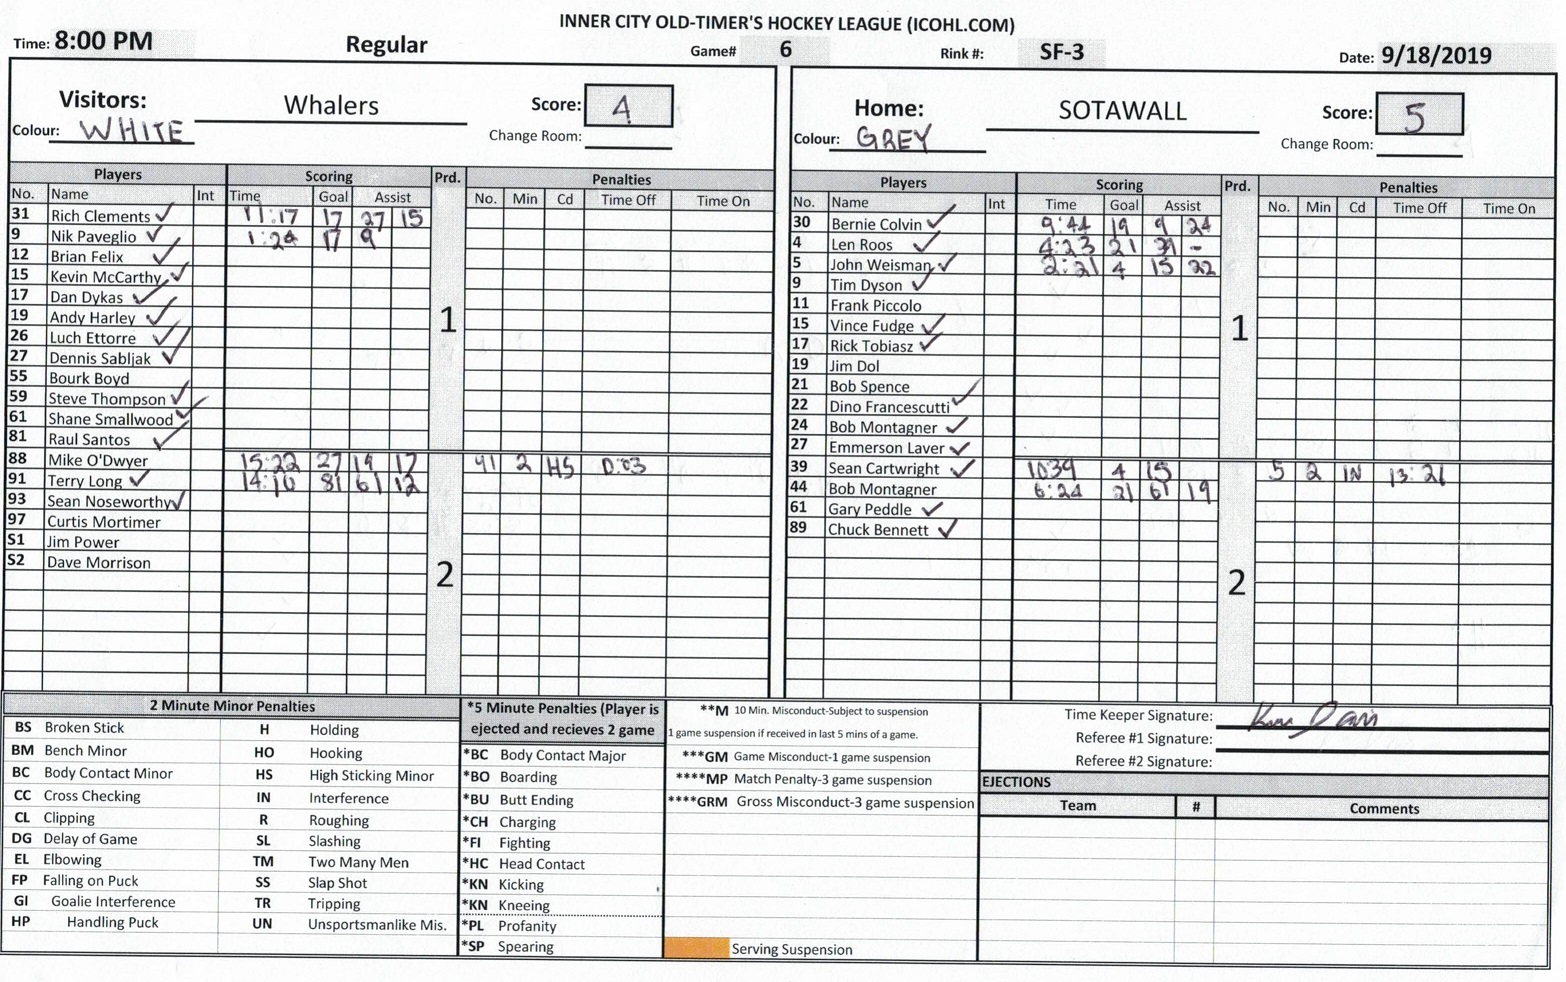 INNER CITY OLD-TIMER'S HOCKEY LEAGUE (ICOHL.COM)
Time: 8:00 PM Regular Game# 6 Rink #: SF-3 Date: 9/18/2019
Visitors: Whalers Score: 4
Colour: WHITE Change Room:
Players Scoring Prd. Penalties
No. Name Int Time Goal Assist No. Min Cd Time Off Time On
31 Rich Clements ✓ 11:17 17 27 15
9 Nik Paveglio ✓ 1:24 17 9
12 Brian Felix ✓
15 Kevin McCarthy ✓
17 Dan Dykas ✓
19 Andy Harley ✓
1
26 Luch Ettorre ✓
27 Dennis Sabljak ✓
55 Bourk Boyd
59 Steve Thompson ✓
61 Shane Smallwood ✓
81 Raul Santos ✓
88 Mike O'Dwyer 15:22 27 19 17 91 2 HS 0:03
91 Terry Long ✓ 14:10 81 61 12
93 Sean Noseworthy ✓
97 Curtis Mortimer
S1 Jim Power
S2 Dave Morrison
2
Home: SOTAWALL Score: 5
Colour: GREY Change Room:
Players Scoring Prd. Penalties
No. Name Int Time Goal Assist No. Min Cd Time Off Time On
30 Bernie Colvin ✓ 9:44 19 9 24
4 Len Roos ✓ 4:23 21 39 -
5 John Weisman ✓ 2:21 4 15 22
9 Tim Dyson ✓
11 Frank Piccolo
15 Vince Fudge ✓
1
17 Rick Tobiasz ✓
19 Jim Dol
21 Bob Spence
22 Dino Francescutti ✓
24 Bob Montagner ✓
27 Emmerson Laver ✓
39 Sean Cartwright ✓ 10:39 4 15 5 2 IN 13:21
44 Bob Montagner 6:24 21 61 19
61 Gary Peddle ✓
89 Chuck Bennett ✓
2
2 Minute Minor Penalties
BS Broken Stick H Holding
BM Bench Minor HO Hooking
BC Body Contact Minor HS High Sticking Minor
CC Cross Checking IN Interference
CL Clipping R Roughing
DG Delay of Game SL Slashing
EL Elbowing TM Two Many Men
FP Falling on Puck SS Slap Shot
GI Goalie Interference TR Tripping
HP Handling Puck UN Unsportsmanlike Mis.
*5 Minute Penalties (Player is
ejected and recieves 2 game
*BC Body Contact Major
*BO Boarding
*BU Butt Ending
*CH Charging
*FI Fighting
*HC Head Contact
*KN Kicking
*KN Kneeing
*PL Profanity
*SP Spearing
**M 10 Min. Misconduct-Subject to suspension
1 game suspension if received in last 5 mins of a game.
***GM Game Misconduct-1 game suspension
****MP Match Penalty-3 game suspension
****GRM Gross Misconduct-3 game suspension
Serving Suspension
Time Keeper Signature:
Referee #1 Signature:
Referee #2 Signature:
EJECTIONS
Team # Comments